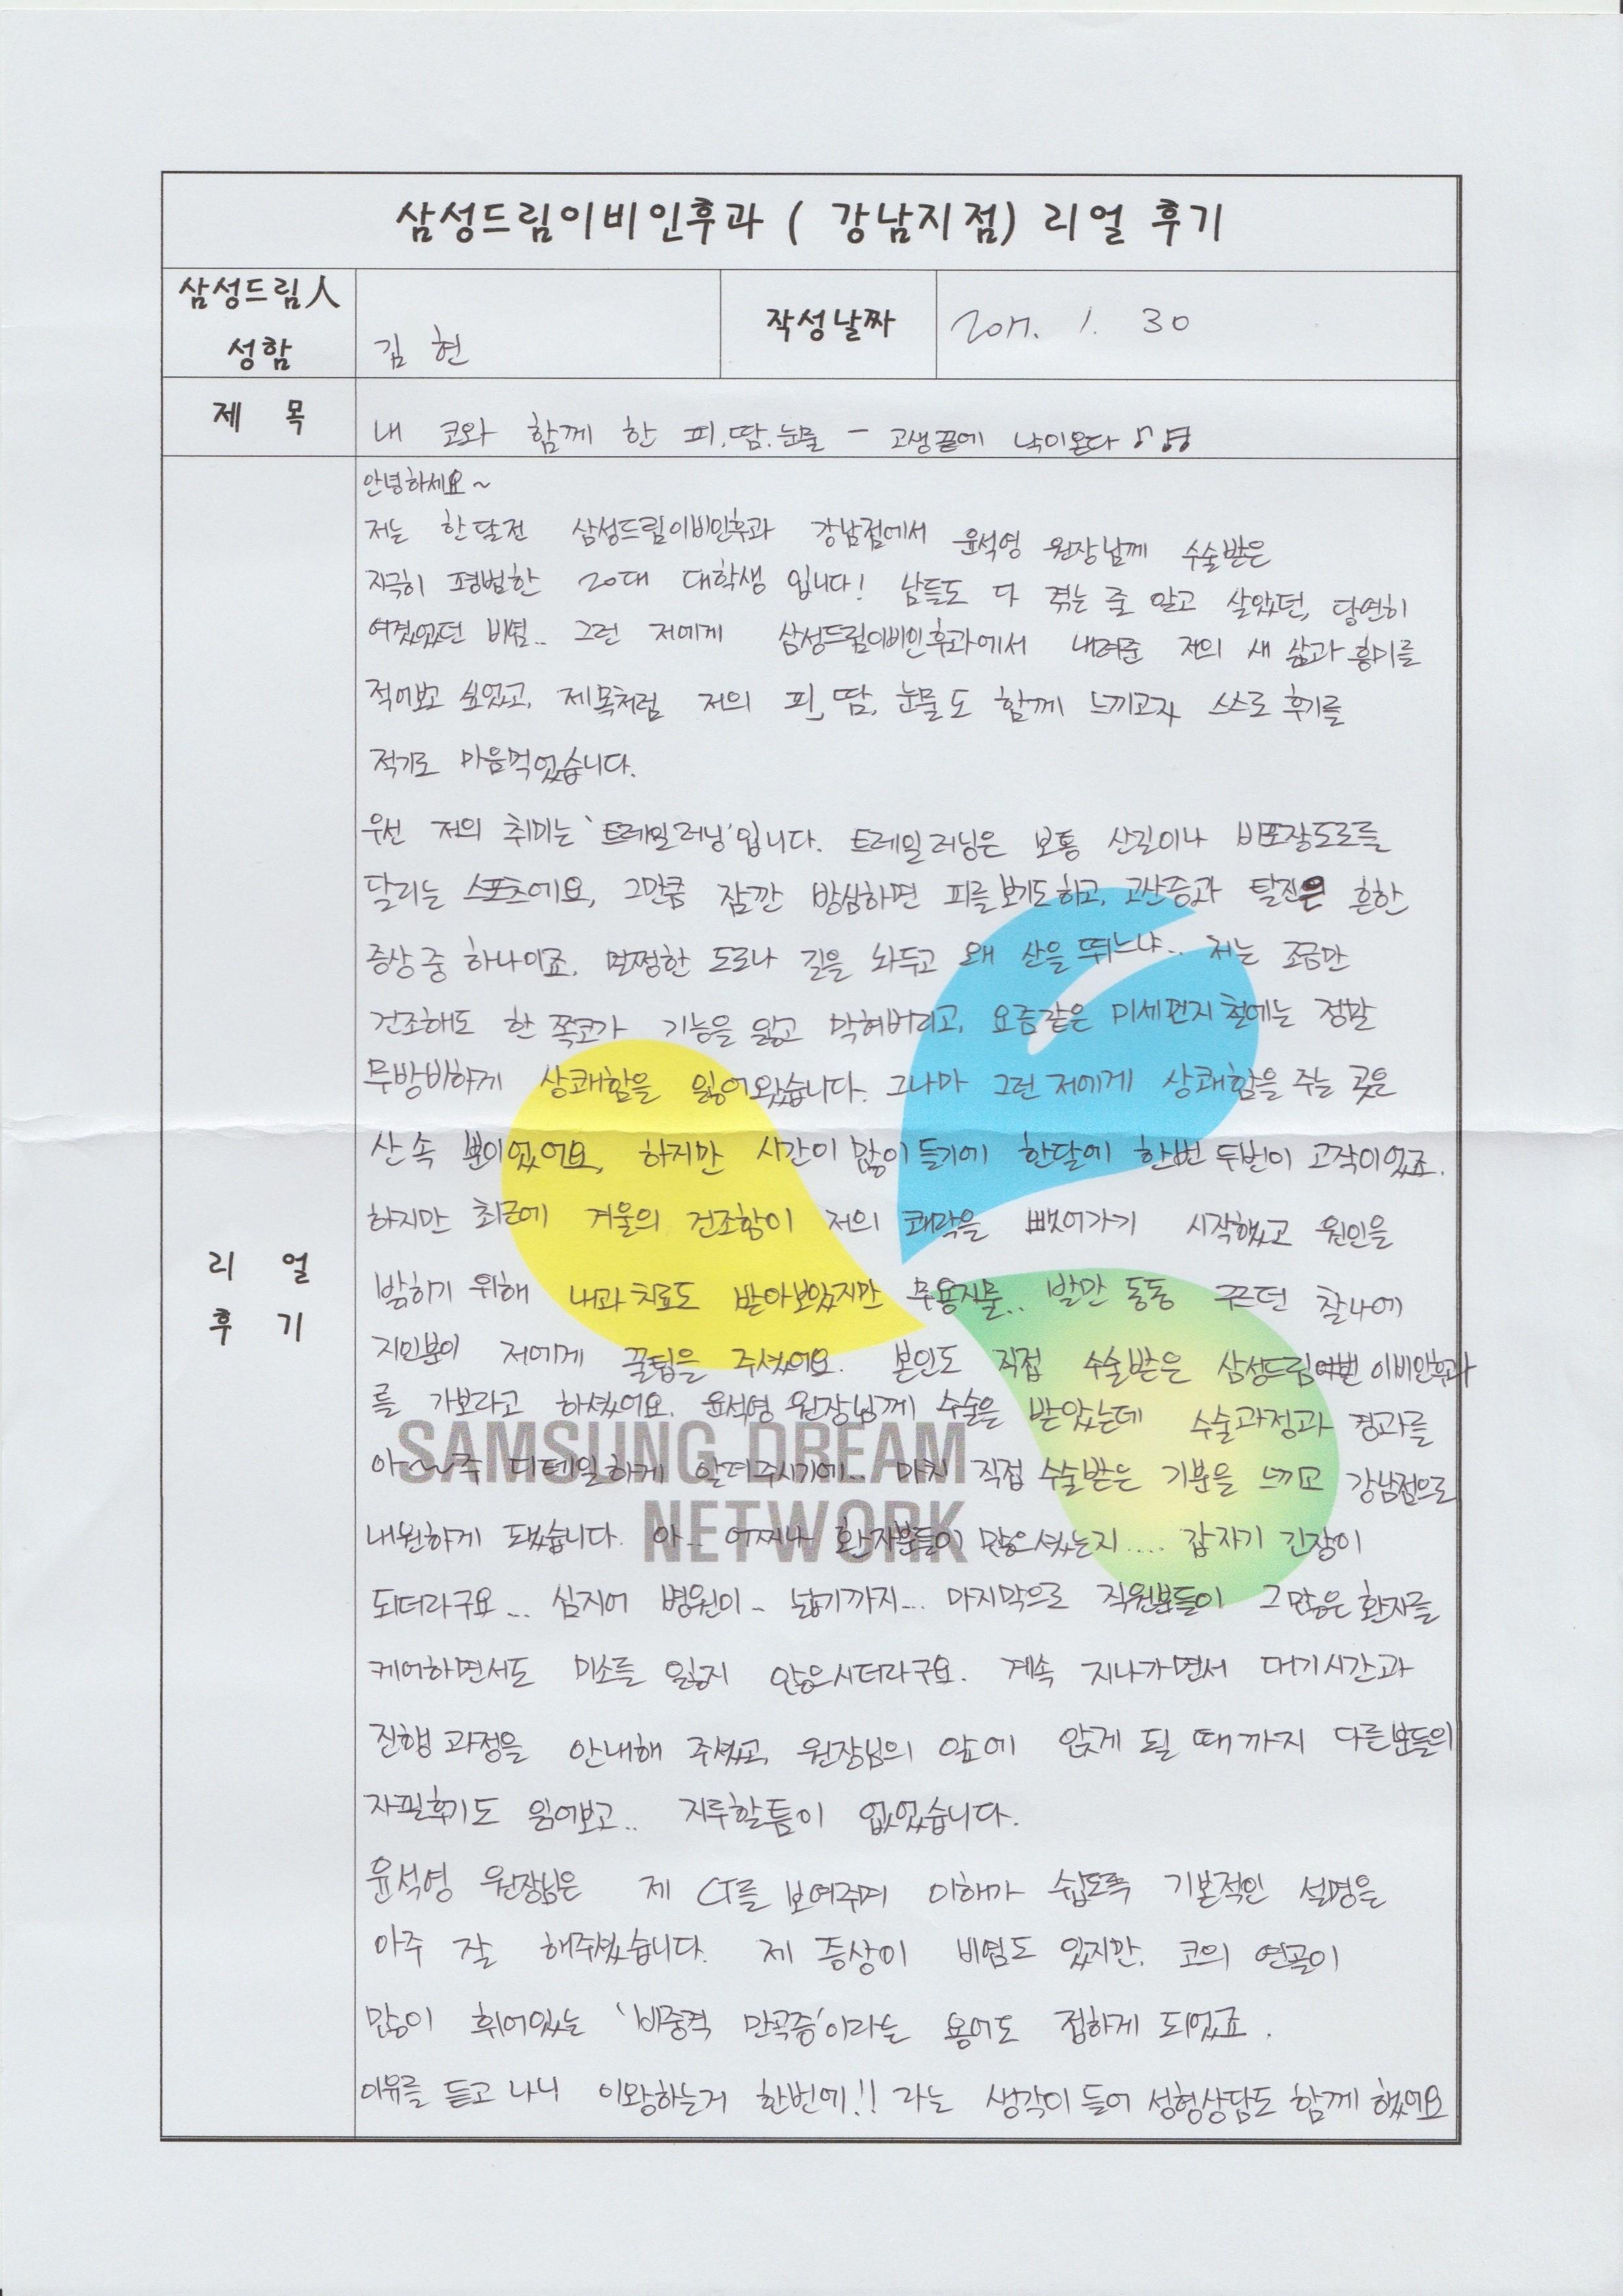 삼성드림이비인후과 ( 강남지점) 리얼 후기
삼성드림人 성함
김 현
작성날짜
2017. 1. 30
제 목
내 코와 함께 한 피.땀.눈물 - 고생끝에 낙이온다 ♪♬
리 얼
후 기
안녕하세요~
저는 한달전 삼성드림이비인후과 강남점에서 윤석영 원장님께 수술받은
지극히 평범한 20대 대학생 입니다! 남들도 다 겪는 줄 알고 살았던, 당연히
여겼었던 비염.. 그런 저에게 삼성드림이비인후과에서 내려준 저의 새 삶과 흥미를
적어보고 싶었고, 제목처럼 저의 피, 땀, 눈물도 함께 느끼고자 스스로 후기를
적기로 마음먹었습니다.
우선 저의 취미는 '트레일러닝'입니다. 트레일러닝은 보통 산길이나 비포장도로를
달리는 스포츠에요, 그만큼 잠깐 방심하면 피를 보기도하고, 고산증과 탈진은 흔한
증상 중 하나이죠. 멀쩡한 도로나 길을 놔두고 왜 산을 뛰느냐.. 저는 조금만
건조해도 한 쪽코가 기능을 잃고 막혀버리고, 요즘같은 미세먼지 철에는 정말
무방비하게 상쾌함을 잃어왔습니다. 그나마 그런 저에게 상쾌함을 주는 곳은
산 속 뿐이었어요, 하지만 시간이 많이 들기에 한달에 한번 두번이 고작이었죠.
하지만 최근에 겨울의 건조함이 저의 쾌락을 뺏어가기 시작했고 원인을
밝히기 위해 내과 치료도 받아보았지만 무용지물.. 발만 동동 구르던 찰나에
지인분이 저에게 꿀팁을 주셨어요. 본인도 직접 수술받은 삼성드림 이비인후과
를 가보라고 하셨어요. 윤석영 원장님께 수술을 받았는데 수술과정과 경과를
아~~주 디테일하게 알려주시기에.. 마치 직접 수술받은 기분을 느끼고 강남점으로
내원하게 됐습니다. 아... 어찌나 환자분들이 많으셨는지.... 갑자기 긴장이
되더라구요... 심지어 병원이.. 넓기까지... 마지막으로 직원분들이 그많은 환자를
케어하면서도 미소를 잃지 않으시더라구요. 계속 지나가면서 대기시간과
진행 과정을 안내해 주셨고, 원장님의 앞에 앉게 될 때까지 다른분들의
자필후기도 읽어보고.. 지루할틈이 없었습니다.
윤석영 원장님은 제 CT를 보여주며 이해가 쉽도록 기본적인 설명을
아주 잘 해주셨습니다. 제 증상이 비염도 있지만, 코의 연골이
많이 휘어있는 '비중격 만곡증'이라는 용어도 접하게 되었죠.
이유를 듣고 나니 이왕하는거 한번에!! 라는 생각이 들어 성형상담도 함께 했어요
SAMSUNG DREAM
NETWORK